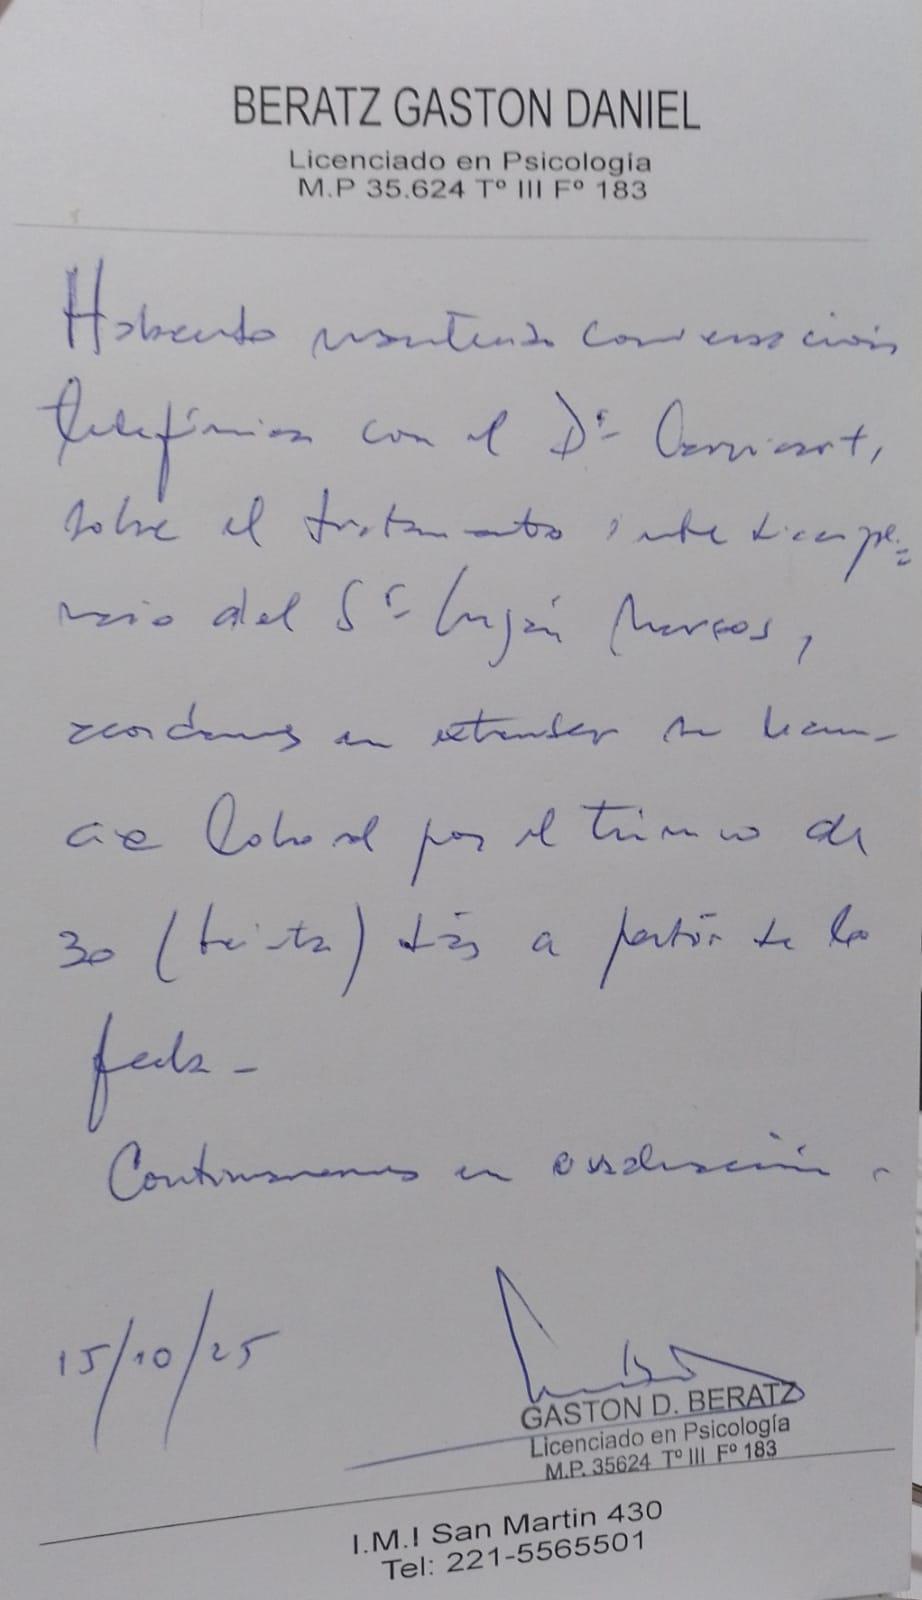 BERATZ GASTON DANIEL
Licenciado en Psicología
M.P 35.624 Tº III Fº 183
Habiendo mantenido conversación
telefónica con el Dr.
sobre el tratamiento interdiscipli=
nario del Sr. Luján Marcos,
acordamos en extender su licen-
cia laboral por el término de
30 (treinta) días a partir de la
fecha -
Continuaremos en evaluación.
15/10/25
GASTON D. BERATZ
Licenciado en Psicología
M.P. 35624 Tº III Fº 183
I.M.I San Martin 430
Tel: 221-5565501